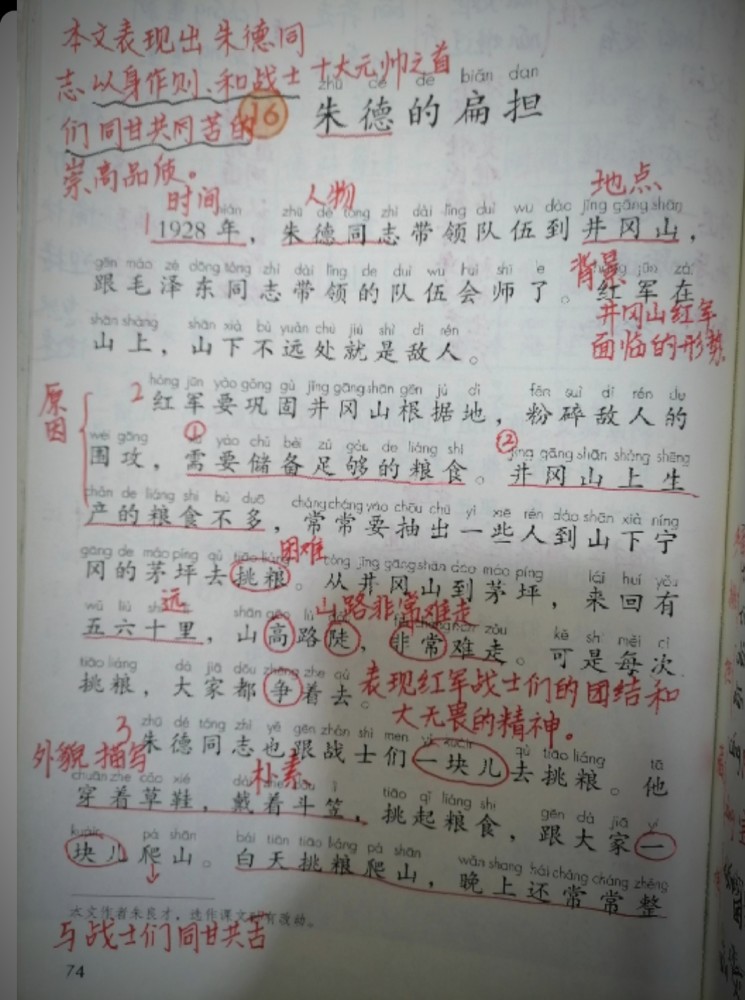 本文表现出朱德同
志以身作则、和战士
们同甘共同苦的
崇高品质。
十大元帅之首
zhū dé de biǎn dan
16 朱德的扁担
时间 人物 地点
1 1928年，朱德同志带领队伍到井冈山，
gēn máo zé dōng tóng zhì dài lǐng de duì wu huì shī le
跟毛泽东同志带领的队伍会师了。红军在
背景
井冈山红军
面临的形势
shān shàng shān xià bù yuǎn chù jiù shì dí rén
山上，山下不远处就是敌人。
原因
hóng jūn yào gǒng gù jǐng gāng shān gēn jù dì fěn suì dí rén de
2 红军要巩固井冈山根据地，粉碎敌人的
① yào chǔ bèi zú gòu de liáng shi ② jǐng gāng shān shàng shēng
围攻，需要储备足够的粮食。井冈山上生
chǎn de liáng shi bù duō cháng cháng yào chōu chū yì xiē rén dào shān xià níng
产的粮食不多，常常要抽出一些人到山下宁
困难
gāng de máo píng qù tiāo liáng cóng jǐng gāng shān dào máo píng lái huí yǒu
冈的茅坪去挑粮。从井冈山到茅坪，来回有
远 山路非常难走
五六十里，山高路陡，非常难走。可是每次
tiāo liáng dà jiā dōu zhēng zhe qù
挑粮，大家都争着去。
表现红军战士们的团结和
大无畏的精神。
zhū dé tóng zhì yě gēn zhàn shì men yí kuàir qù tiāo liáng tā
3 朱德同志也跟战士们一块儿去挑粮。他
外貌描写 朴素
chuān zhe cǎo xié tiāo qǐ liáng shi gēn dà jiā yí
穿着草鞋，戴着斗笠，挑起粮食，跟大家一
kuàir pá shān bái tiān tiāo liáng pá shān wǎn shang hái cháng cháng zhěng
块儿爬山。白天挑粮爬山，晚上还常常整
本文作者朱良才，选作课文时有改动。
与战士们同甘共苦
74